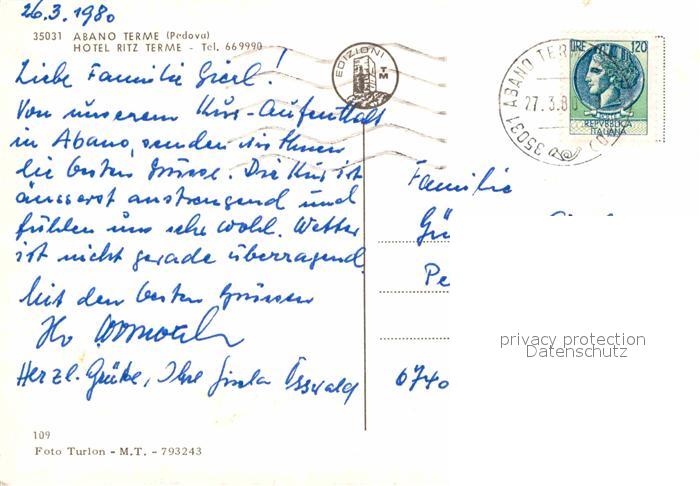 26.3.1980
35031 ABANO TERME (Padova)
HOTEL RITZ TERME - Tel. 669990
Liebe Familie Gierl!
Von unserem Kur-Aufenthalt
in Abano, senden wir Ihnen
die besten Grüsse. Die Kur ist
äusserst anstrengend und
fühlen uns sehr wohl. Wetter
ist nicht gerade überragend.
Mit den besten Grüssen
Ihr
Herzl. Grüße, Ihre Gisela Osswald
109
Foto Turlon - M.T. - 793243
EDIZIONI
TM
35031 ABANO TERME
27.3.80
LIRE 120
REPVBBLICA
ITALIANA
Familie
Gü
Pe
6740
privacy protection
Datenschutz